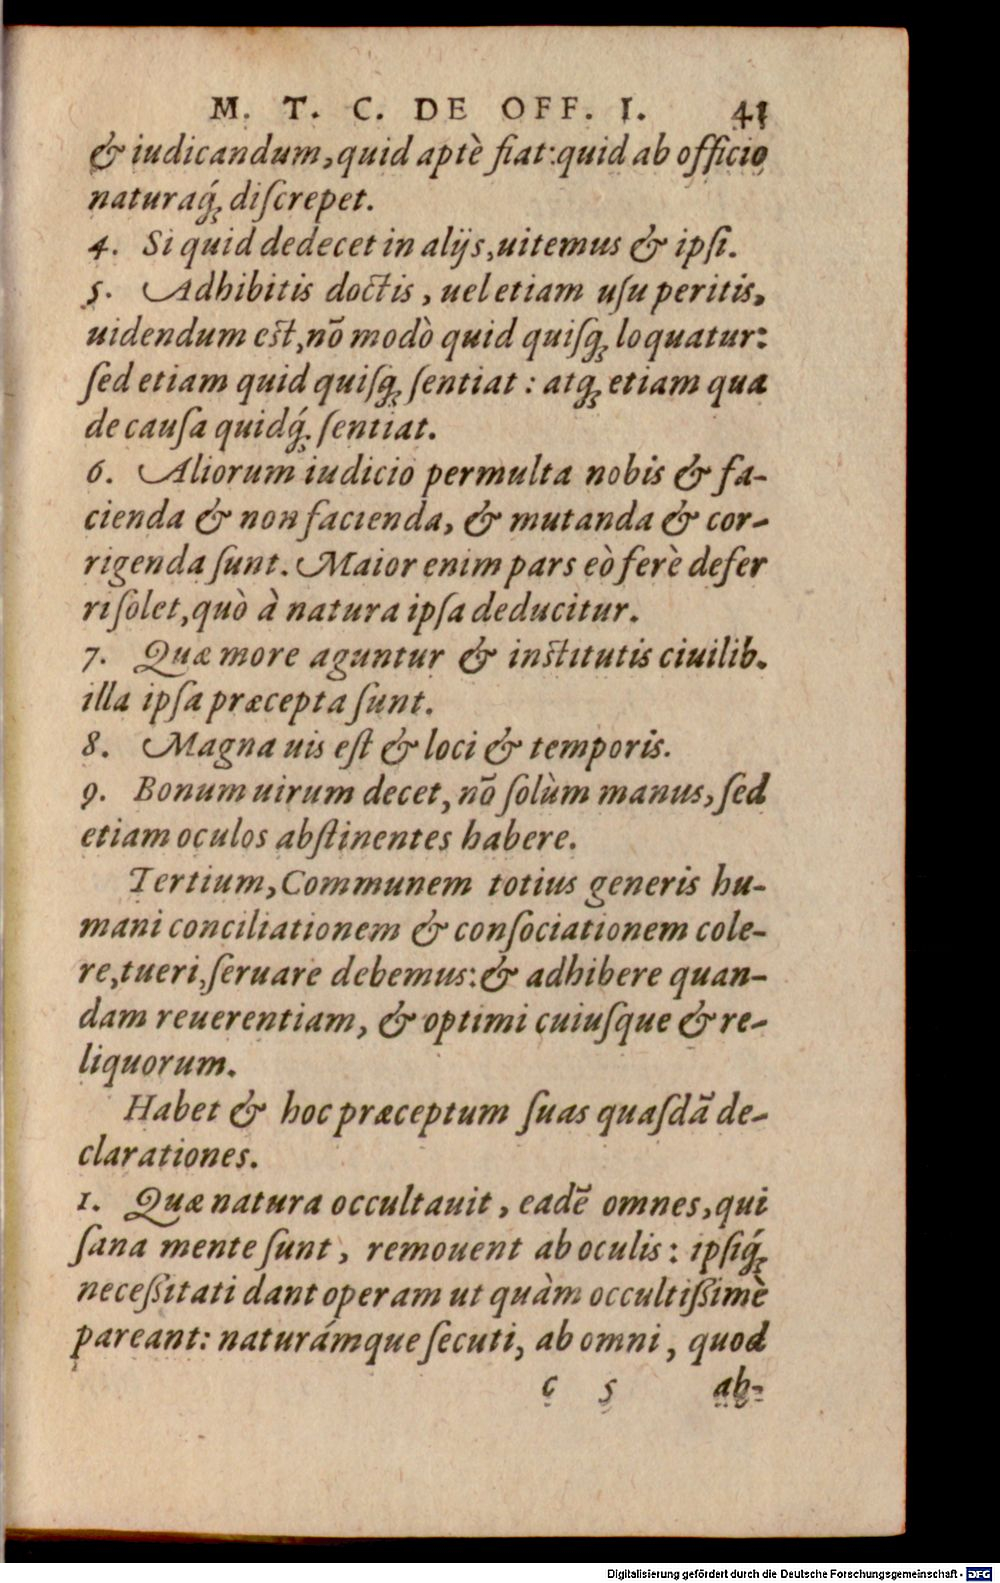 M. T. C. DE OFF. I. 41
& iudicandum, quid aptè fiat: quid ab officio
naturaq́ꝫ diſcrepet.
4. Si quid dedecet in alijs, uitemus & ipſi.
5. Adhibitis doctis, uel etiam uſu peritis,
uidendum est, nō modò quid quiſqꝫ loquatur:
ſed etiam quid quiſqꝫ ſentiat: atqꝫ etiam qua
de cauſa quidq́ꝫ ſentiat.
6. Aliorum iudicio permulta nobis & fa-
cienda & non facienda, & mutanda & cor-
rigenda ſunt. Maior enim pars eò ferè defer
ri ſolet, quò à natura ipſa deducitur.
7. Quæ more aguntur & institutis ciuilib.
illa ipſa præcepta ſunt.
8. Magna uis eſt & loci & temporis.
9. Bonum uirum decet, nō ſolùm manus, ſed
etiam oculos abſtinentes habere.
Tertium, Communem totius generis hu-
mani conciliationem & conſociationem cole-
re, tueri, ſeruare debemus: & adhibere quan-
dam reuerentiam, & optimi cuiuſque & re-
liquorum.
Habet & hoc præceptum ſuas quaſdā de-
clarationes.
1. Quæ natura occultauit, eadē omnes, qui
ſana mente ſunt, remouent ab oculis: ipſiq́ꝫ
neceßitati dant operam ut quàm occultißimè
pareant: naturámque ſecuti, ab omni, quod
c 5 ab-
Digitalisierung gefördert durch die Deutsche Forschungsgemeinschaft - DFG